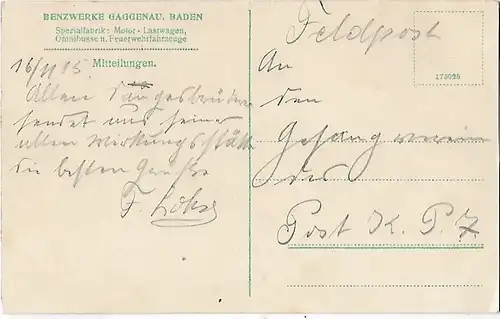 BENZWERKE GAGGENAU, BADEN
Spezialfabrik: Motor-Lastwagen,
Omnibusse u. Feuerwehrfahrzeuge
16/11 15 Mitteilungen.
Allen Sangesbrüdern
sendet aus seiner
alten Wirkungsstätte
die besten Grüße
F.
Feldpost
173025
An
den
Gesangverein
der
Post K. P. 7